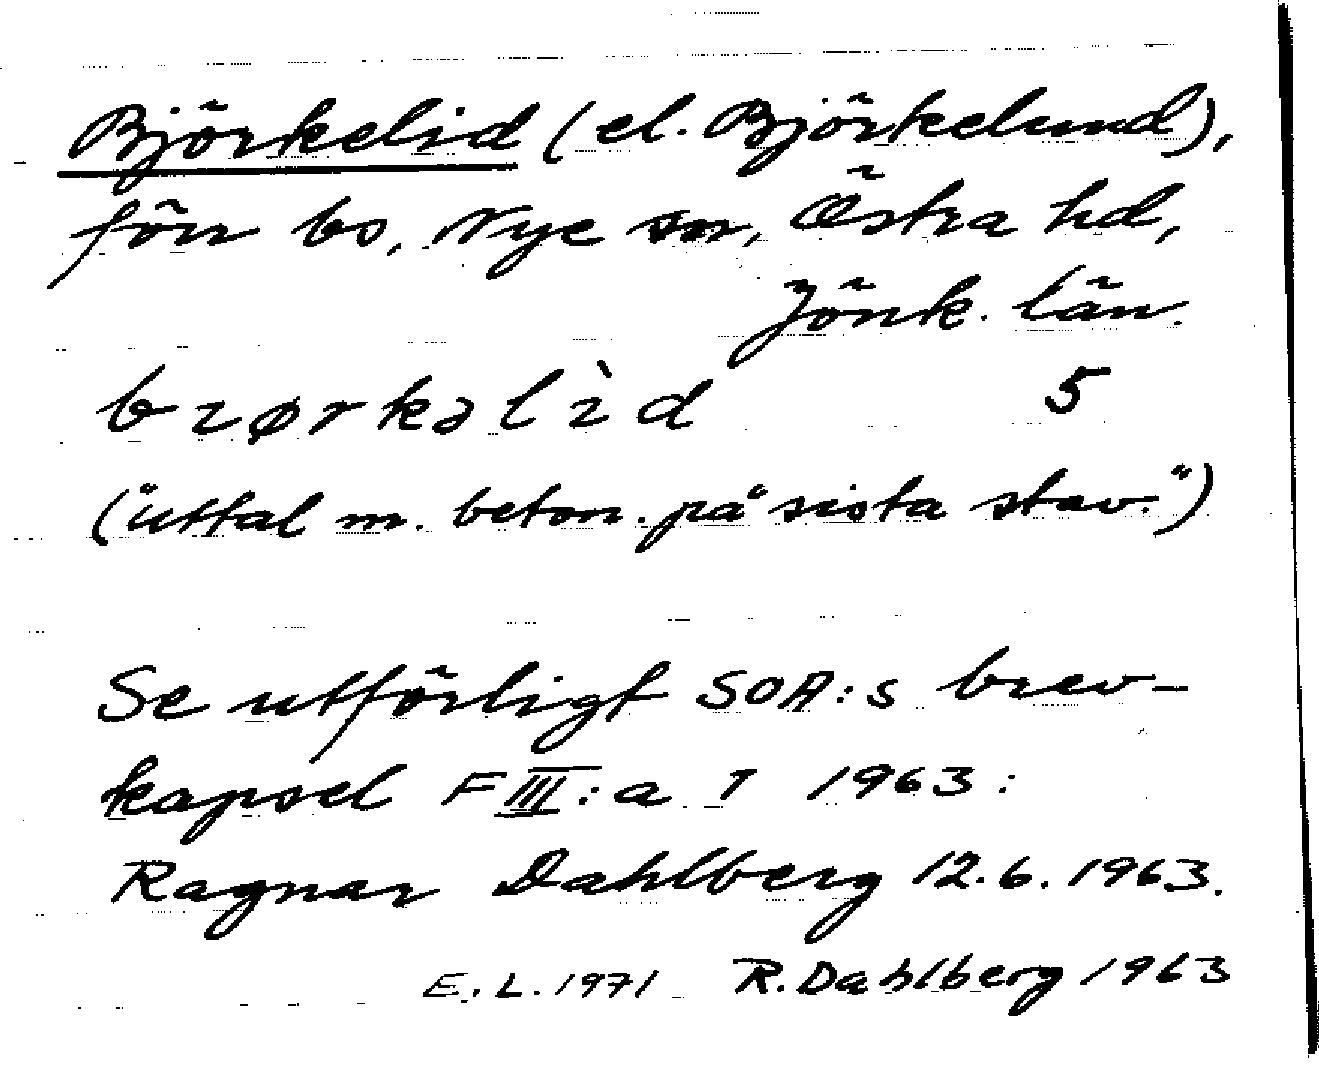 Björkelid (el. Björkelund),
förr bs, Nye sn, Östra hd,
Jönk. län.
bɩørkəlɩ̀d 5
("uttal m. beton. på sista stav.")
Se utförligt SOA:s brev-
kapsel F III:a 7 1963:
Ragnar Dahlberg 12.6.1963.
E.L.1971 R.Dahlberg 1963